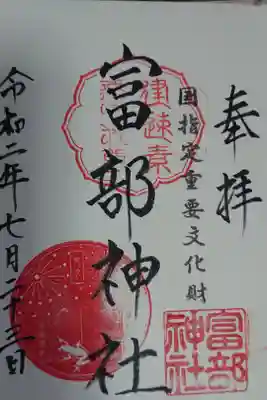 奉拝
国指定重要文化財
富部神社
令和二年七月二十三日
建速素
富部
神社